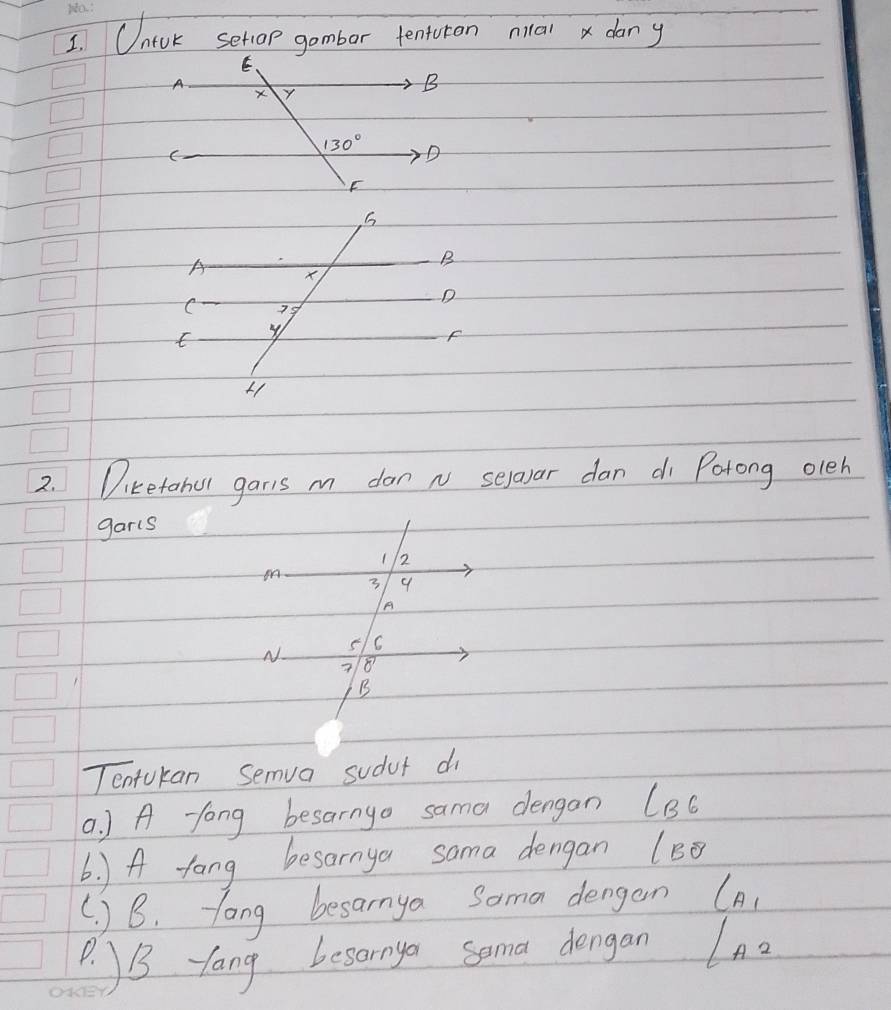 No:
1. Untuk setiap gambar tentukan nilai x dan y
E
A x y B
130°
C D
F
G
A B
x
C D
75
y
E F
H
2. Diketahui garis m dan N sejajar dan di Potong oleh
garis
1 2
m
3 4
A
5 6
N
7 8
B
Tentukan semua sudut di
a.) A Yang besarnya sama dengan ∠B6
b.) A Yang besarnya sama dengan ∠B8
c.) B. Yang besarnya sama dengan ∠A1
P.) B Yang besarnya sama dengan ∠A2
OKEY